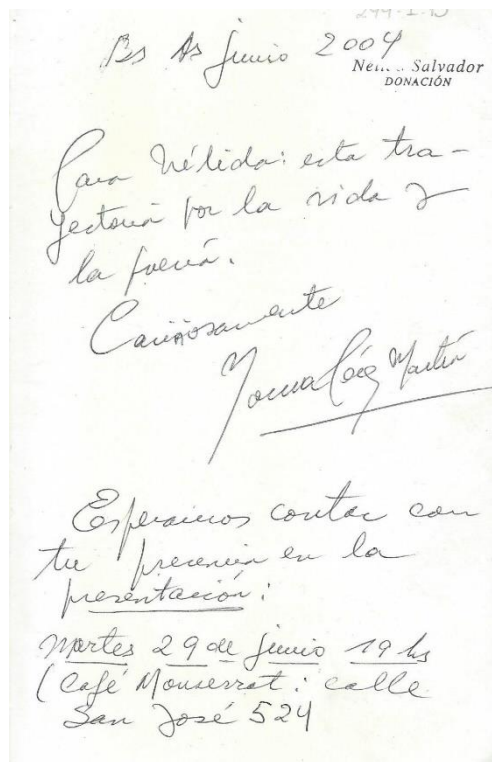 Bs As junio 2004
Salvador
DONACIÓN
Para Nélida: esta tra-
yectoria por la vida y
la poesía.
Cariñosamente
Norma Martín
Esperamos contar con
tu presencia en la
presentación:
Martes 29 de junio 19 hs
(Café Monserrat: calle
San José 524